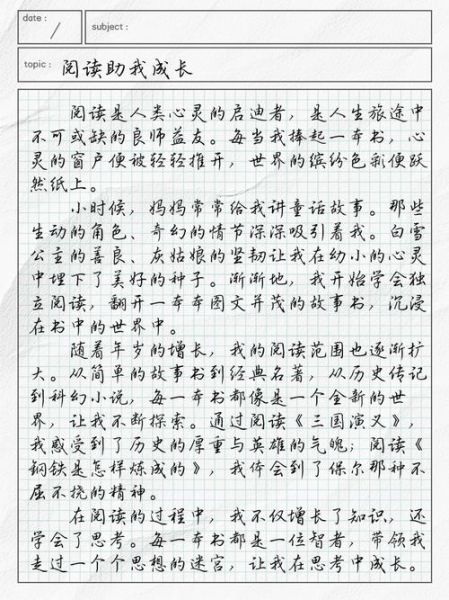 date :
/
subject :
topic : 阅读助我成长
阅读是人类心灵的启迪者，是人生旅途中
不可或缺的良师益友。每当我捧起一本书，心
灵的窗户便被轻轻推开，世界的缤纷色彩便跃
然纸上。
小时候，妈妈常常给我讲童话故事。那些
生动的角色、奇幻的情节深深吸引着我。白雪
公主的善良、灰姑娘的坚韧让我在幼小的心灵
中埋下了美好的种子。渐渐地，我开始学会独
立阅读，翻开一本本图文并茂的故事书，沉浸
在书中的世界中。
随着年岁的增长，我的阅读范围也逐渐扩
大。从简单的故事书到经典名著，从历史传记
到科幻小说，每一本书都像是一个全新的世
界，让我不断探索。通过阅读《三国演义》，
我感受到了历史的厚重与英雄的气魄；阅读《
钢铁是怎样炼成的》，我体会到了保尔那种不
屈不挠的精神。
在阅读的过程中，我不仅增长了知识，还
学会了思考。每一本书都是一位智者，带领我
走过一个个思想的迷宫，让我在思考中成长。